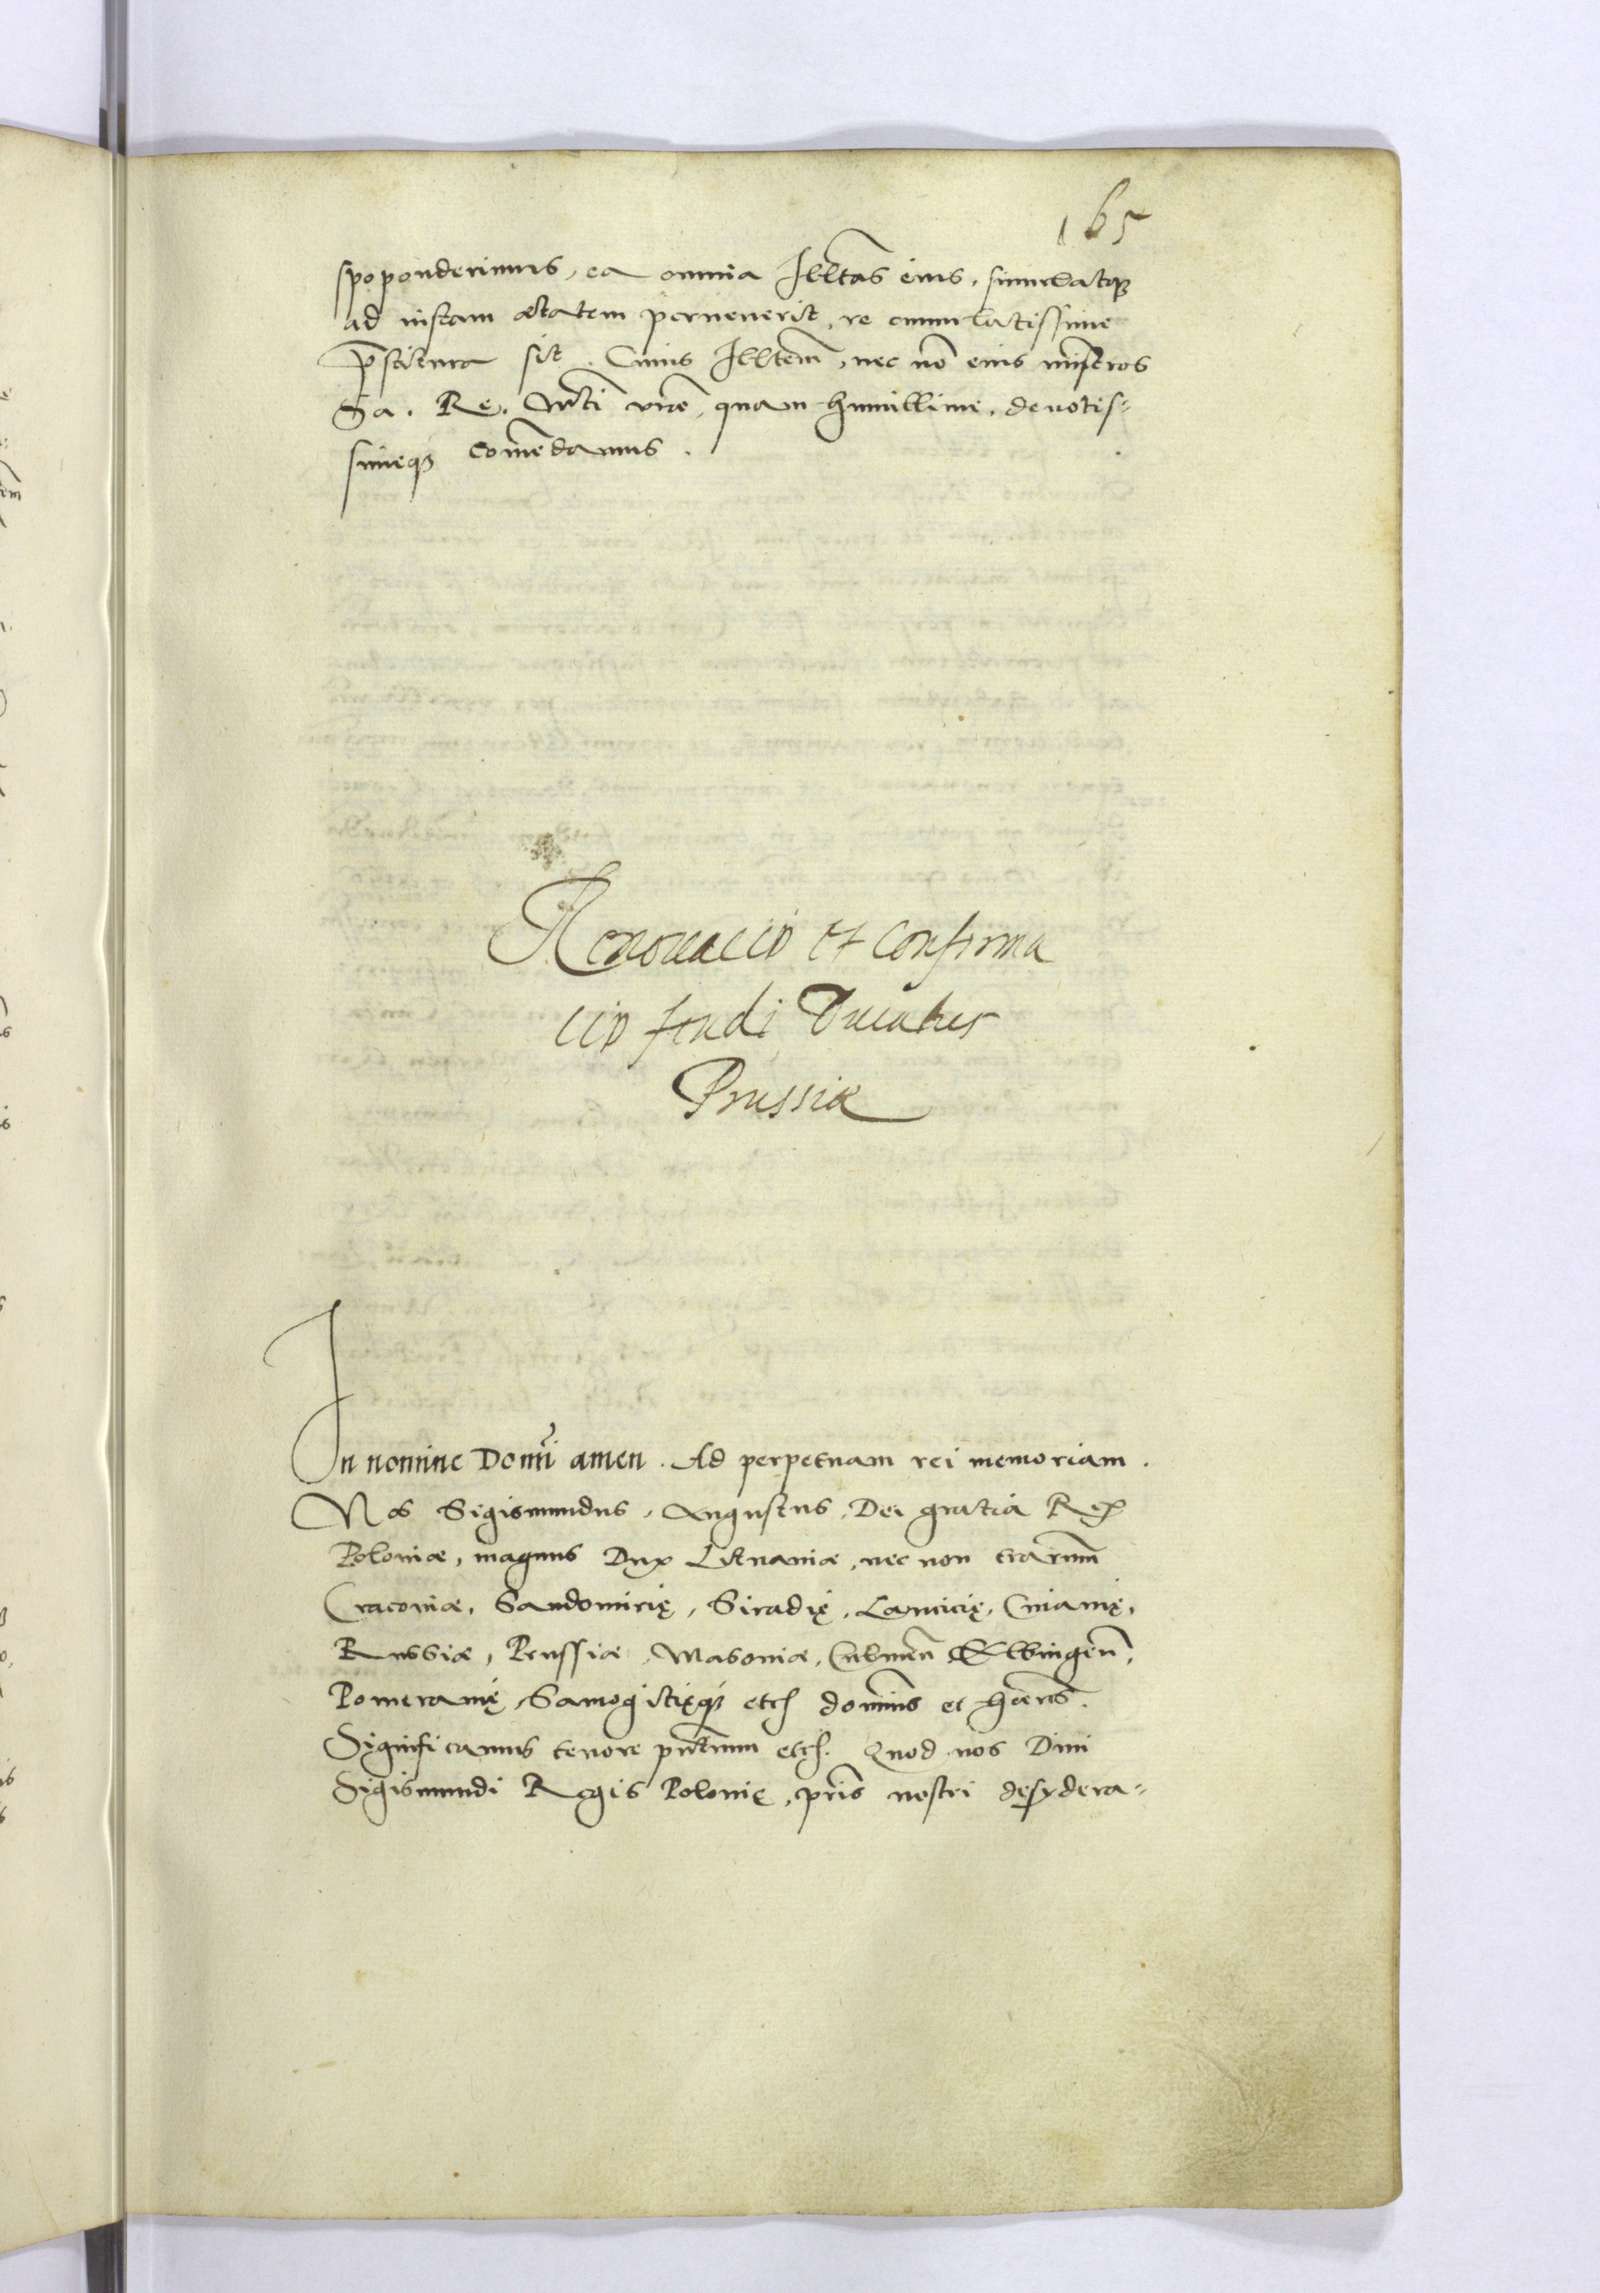 165
spoponderimus, ea omnia Illtas eius, simulatq̃
ad iustam ætatem peruenerit, re cumulatissime
p̃stitura sit. Cuius Illtem̃, nec nõ eius mĩstros
Sa. Re. Mti vrẽ, quam humillime, deuotis=
simeq̃ com̃endamus.
Renouacio et confirma
cio feudi Ducatus
Prussiæ
In nomine Domĩ amen. Ad perpetuam rei memoriam.
Nos Sigismundus, Augustus, Dei gratia Rex
Poloniæ, magnus Dux Lituaniæ, nec non trarum̃
Cracouiæ, Sandomirię, Siradię, Lancicię, Cuiauię,
Russiæ, Prussiæ, Masouiæ, Culmeñ Elbingeñ,
Pomeranię, Samogitięq̃ etc̃ dominus et hæres.
Significamus tenore pñtium etc̃. Quod nos Diui
Sigismundi Regis Polonię, pris̃ nostri desydera=